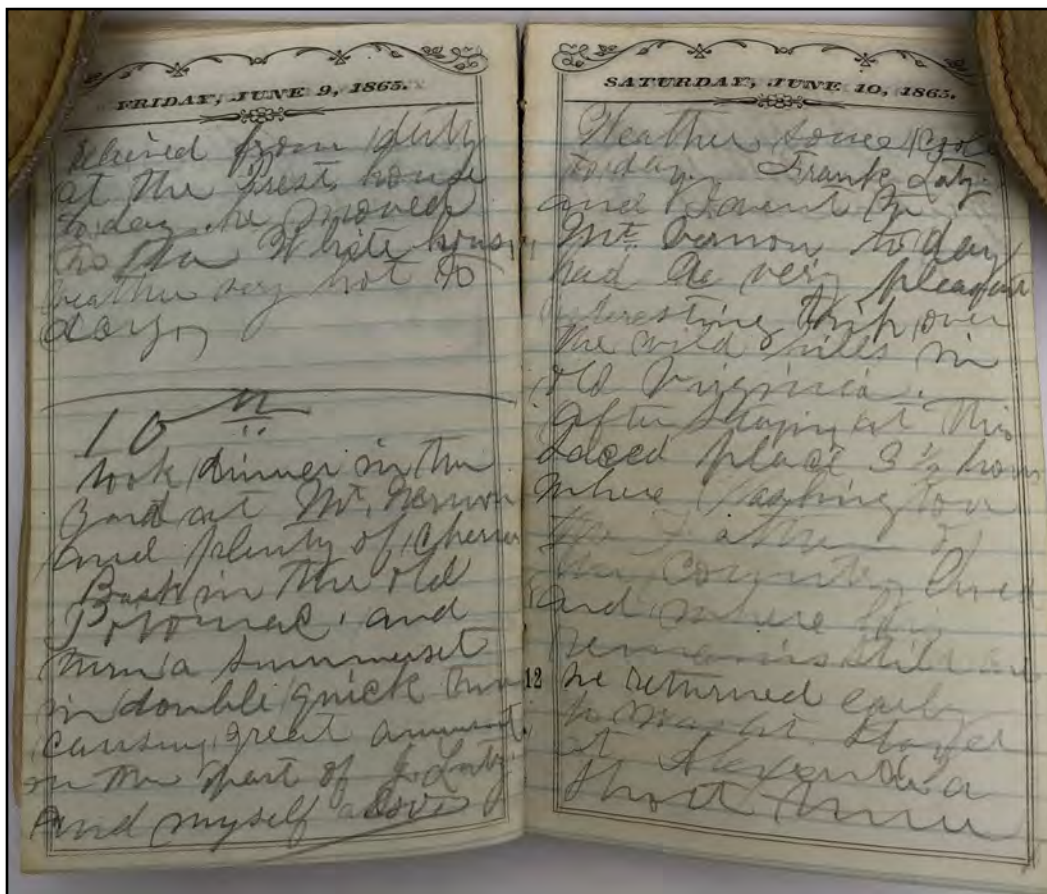 FRIDAY, JUNE 9, 1865.
Relieved from duty
at the Prest. house
to day, he moved
to the White house,
weather very hot to
day,
10th
took dinner in the
yard at Mt. Vernon
and plenty of cherries
Bask in the old
Potomac, and
turn a summerset
in double quick time
causing great amusmt.
on the part of J. Lutz.
And myself above
SATURDAY, JUNE 10, 1865.
Weather some
to day. Frank Lutz.
and I went to
Mt. Vernon to day
had a very pleasant
interesting trip over
the wild hills in
old Virginia.
After staying at this
Saced place 3 1/2 hours
where Washington
the Father of
the Country lived
and where his
remains still are
12 we returned early
at Alexandria
short time